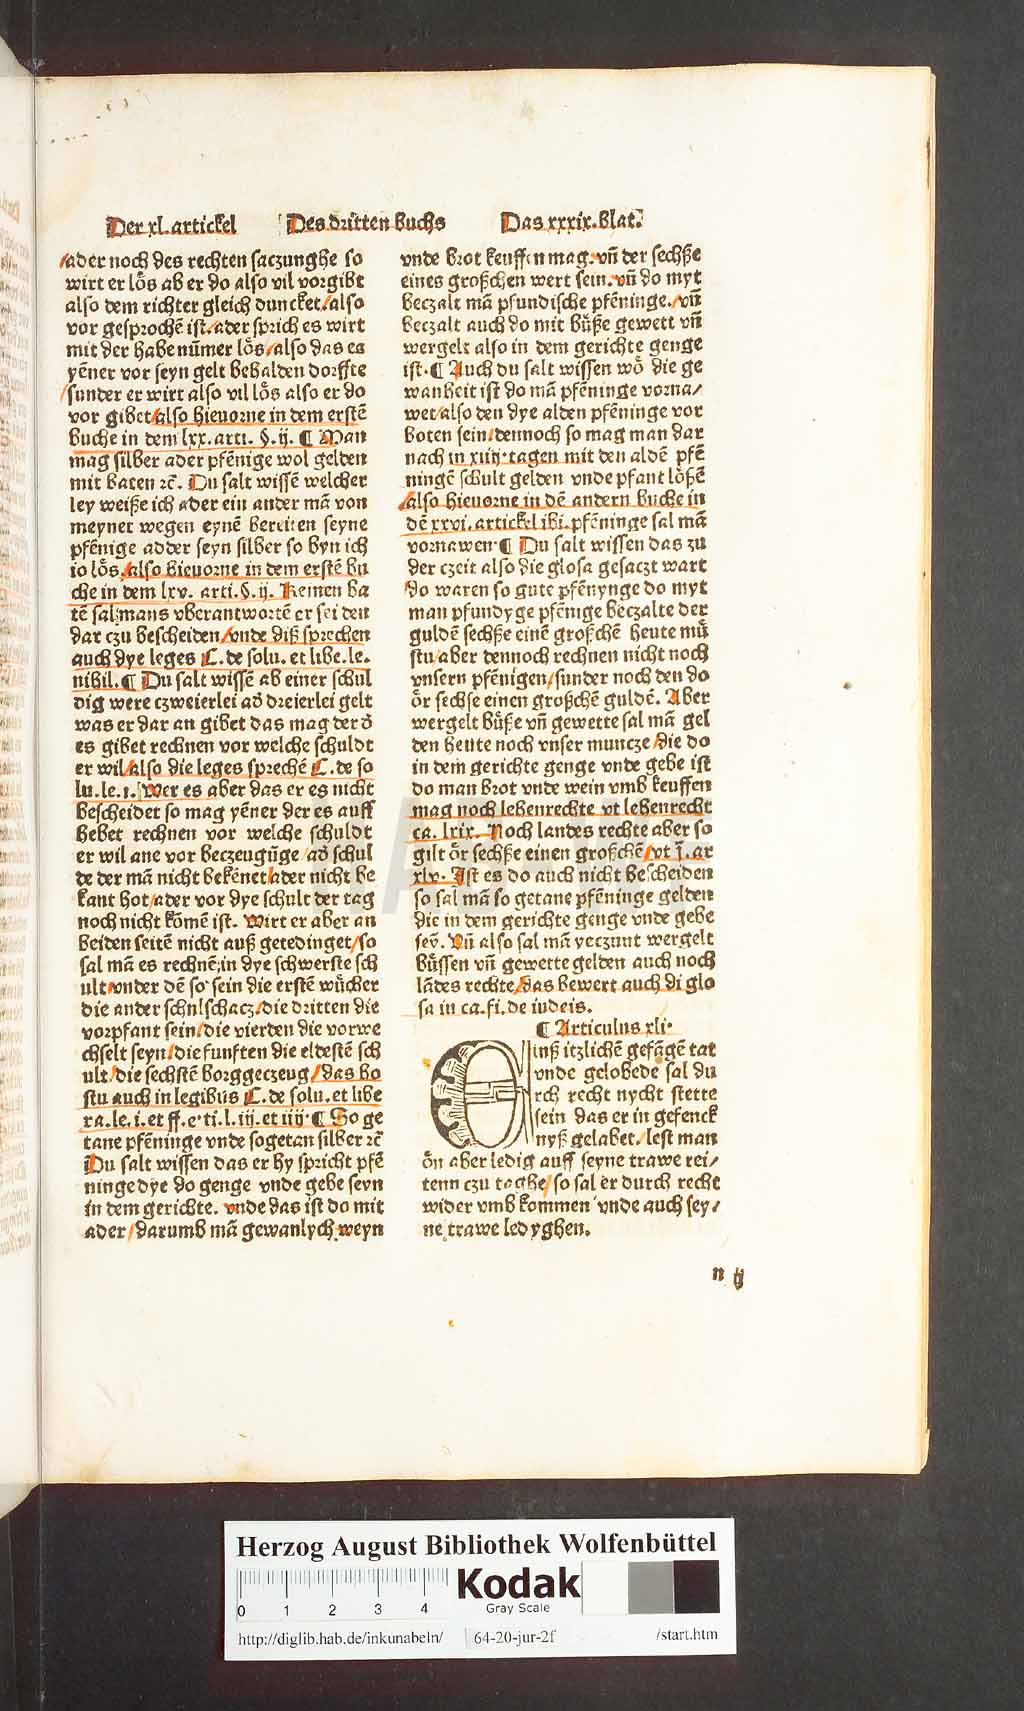 Der xl. artickel Des dritten buchs Das xxxix. blat.
/ader noch des rechten saczunghe so
wirt er lôs ab er do also vil vorgibt
also dem richter gleich duncket/also
vor gesprochē ist/ader sprich es wirt
mit der habe nūmer lôs/also das es
yēner vor seyn gelt behalden dorffte
/sunder er wirt also vil lôs also er do
vor gibet/also hieuorne in dem erstē
buche in dem lxx. arti. §. ij. ¶ Man
mag silber ader pfēnige wol gelden
mit baten ꝛc̄. Du salt wissē welcher
ley weiße ich ader ein ander mā von
meynet wegen eynē bereiten seyne
pfēnige adder seyn silber so byn ich
io lôs/also hieuorne in dem erstē bu
che in dem lxv. arti. §. ij. Keinen ba
tē sal mans vberantwortē er sei den
dar czu bescheiden/vnde diß sprechen
auch dye leges C. de solu. et libe. le.
nihil. ¶ Du salt wissē ab einer schul
dig were czweierlei ad̄ dreierlei gelt
was er dar an gibet das mag der d̄
es gibet rechnen vor welche schuldt
er wil/also die leges sprechē C. de so
lu. le. i. Wer es aber das er es nicht
bescheidet so mag yēner der es auff
hebet rechnen vor welche schuldt
er wil ane vor beczeugūge/ad̄ schul
de der mā nicht bekēnet/ader nicht be
kant hot/ader vor dye schult der tag
noch nicht kōmē ist. Wirt er aber an
beiden seitē nicht auß getedinget/so
sal mā es rechnē in dye schwerste sch
ult/vnder dē so sein die erstē wůcher
die ander schulschacz/die dritten die
vorpfant sein/die vierden die vorwe
chselt seyn/die funften die eldestē sch
ult/die sechstē borggeczeug/das ho
stu auch in legibus C. de solu. et libe
ra. le. i. et ff. e. ti. l. iij. et iiij. ¶ So ge
tane pfēninge vnde sogetan silber ꝛc̄
Du salt wissen das er hy spricht pfē
ninge dye do genge vnde gebe seyn
in dem gerichte. vnde das ist do mit
ader/darumb mā gewanlych weyn
vnde brot keuffen mag. vñ der sechße
eines großchen wert sein. vñ do myt
beczalt mā pfundische pfēninge./vñ
beczalt auch do mit bůße gewett vñ
wergelt also in dem gerichte genge
ist. ¶ Auch du salt wissen wô die ge
wanheit ist do mā pfēninge vorna/
wet/also den dye alden pfēninge vor
boten sein/dennoch so mag man dar
nach in xiiij. tagen mit den aldē pfē
ningē schult gelden vnde pfant lôßē
/also hieuorne in dē andern buche in
dē xxvi. artickel ibi. pfēninge sal mā
vornawen. ¶ Du salt wissen das zu
der czeit also die glosa gesaczt wart
/do waren so gute pfēnynge do myt
man pfundyge pfēnige beczalte der
guldē sechße einē großchē heute mů
stu/aber dennoch rechnen nicht noch
vnsern pfēnigen/sunder noch den do
ôr sechse einen großchē guldē. Aber
wergelt bůße vñ gewette sal mā gel
den heute noch vnser muncze/die do
in dem gerichte genge vnde gebe ist
do man brot vnde wein vmb keuffen
mag noch lehenrechte vt lehenrecht
ca. lxix. Noch landes rechte aber so
gilt ôr sechße einen großchē/vt j. ar
xlv. Ist es do auch nicht bescheiden
so sal mā so getane pfēninge gelden
die in dem gerichte genge vnde gebe
sey̅. Vñ also sal mā yeczunt wergelt
bůssen vñ gewette gelden auch noch
lādes rechte/das bewert auch di glo
sa in ca. fi. de iudeis.
¶ Articulus xli.
Einß itzlichē gefāgē tat
vnde gelobede sal du
rch recht nycht stette
sein das er in gefenck
nyß gelabet. lest man
ôn aber ledig auff seyne trawe rei/
tenn czu taghe/so sal er durch recht
wider vmb kommen vnde auch sey/
ne trawe ledyghen.
n ij
Herzog August Bibliothek Wolfenbüttel
0 1 2 3 4 Kodak
Gray Scale
http://diglib.hab.de/inkunabeln/ 64-20-jur-2f /start.htm
HAB W